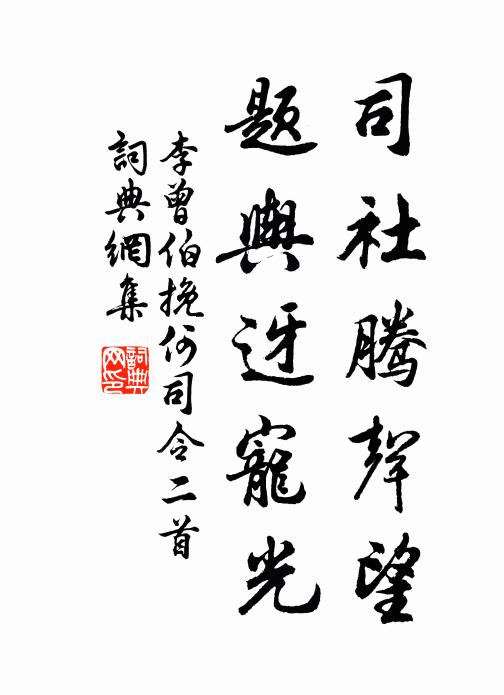 司社騰聲望
題輿迓寵光
李曾伯挽何司令二首
詞典網集
詞典網印